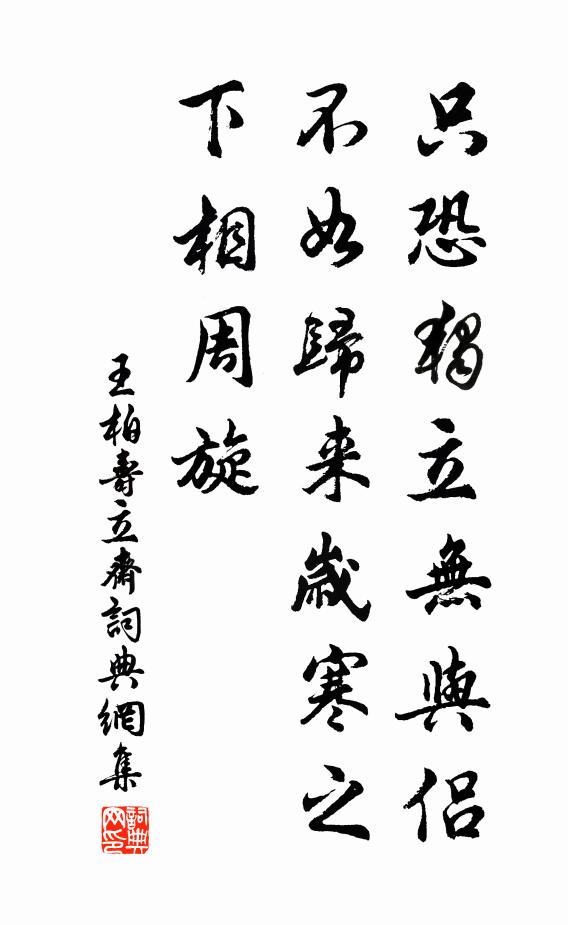 只恐獨立無與侶
不如歸来歲寒之
下相周旋
王柏壽立齋詞典網集
詞典網印